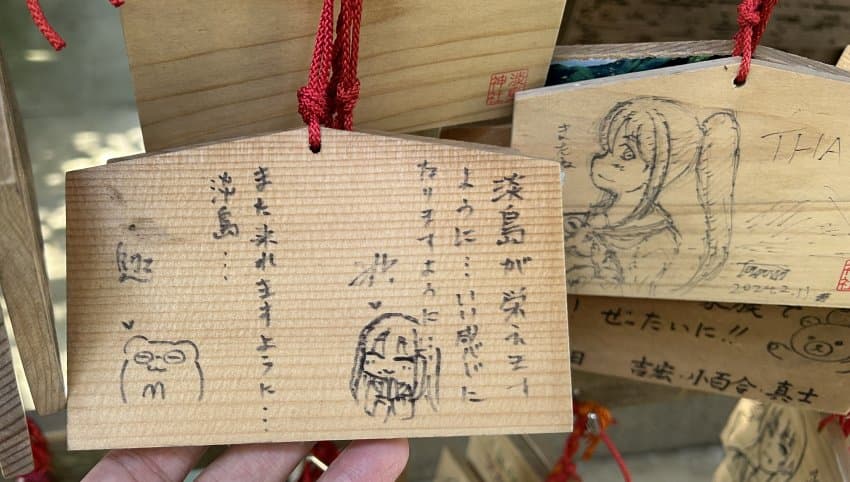 淡島が栄え
ように…いい感じに
なりますように…
また来れますように…
淡島…
淡島神社
THA
2024.2.11
ぜったいに!!
小百合・真士
日